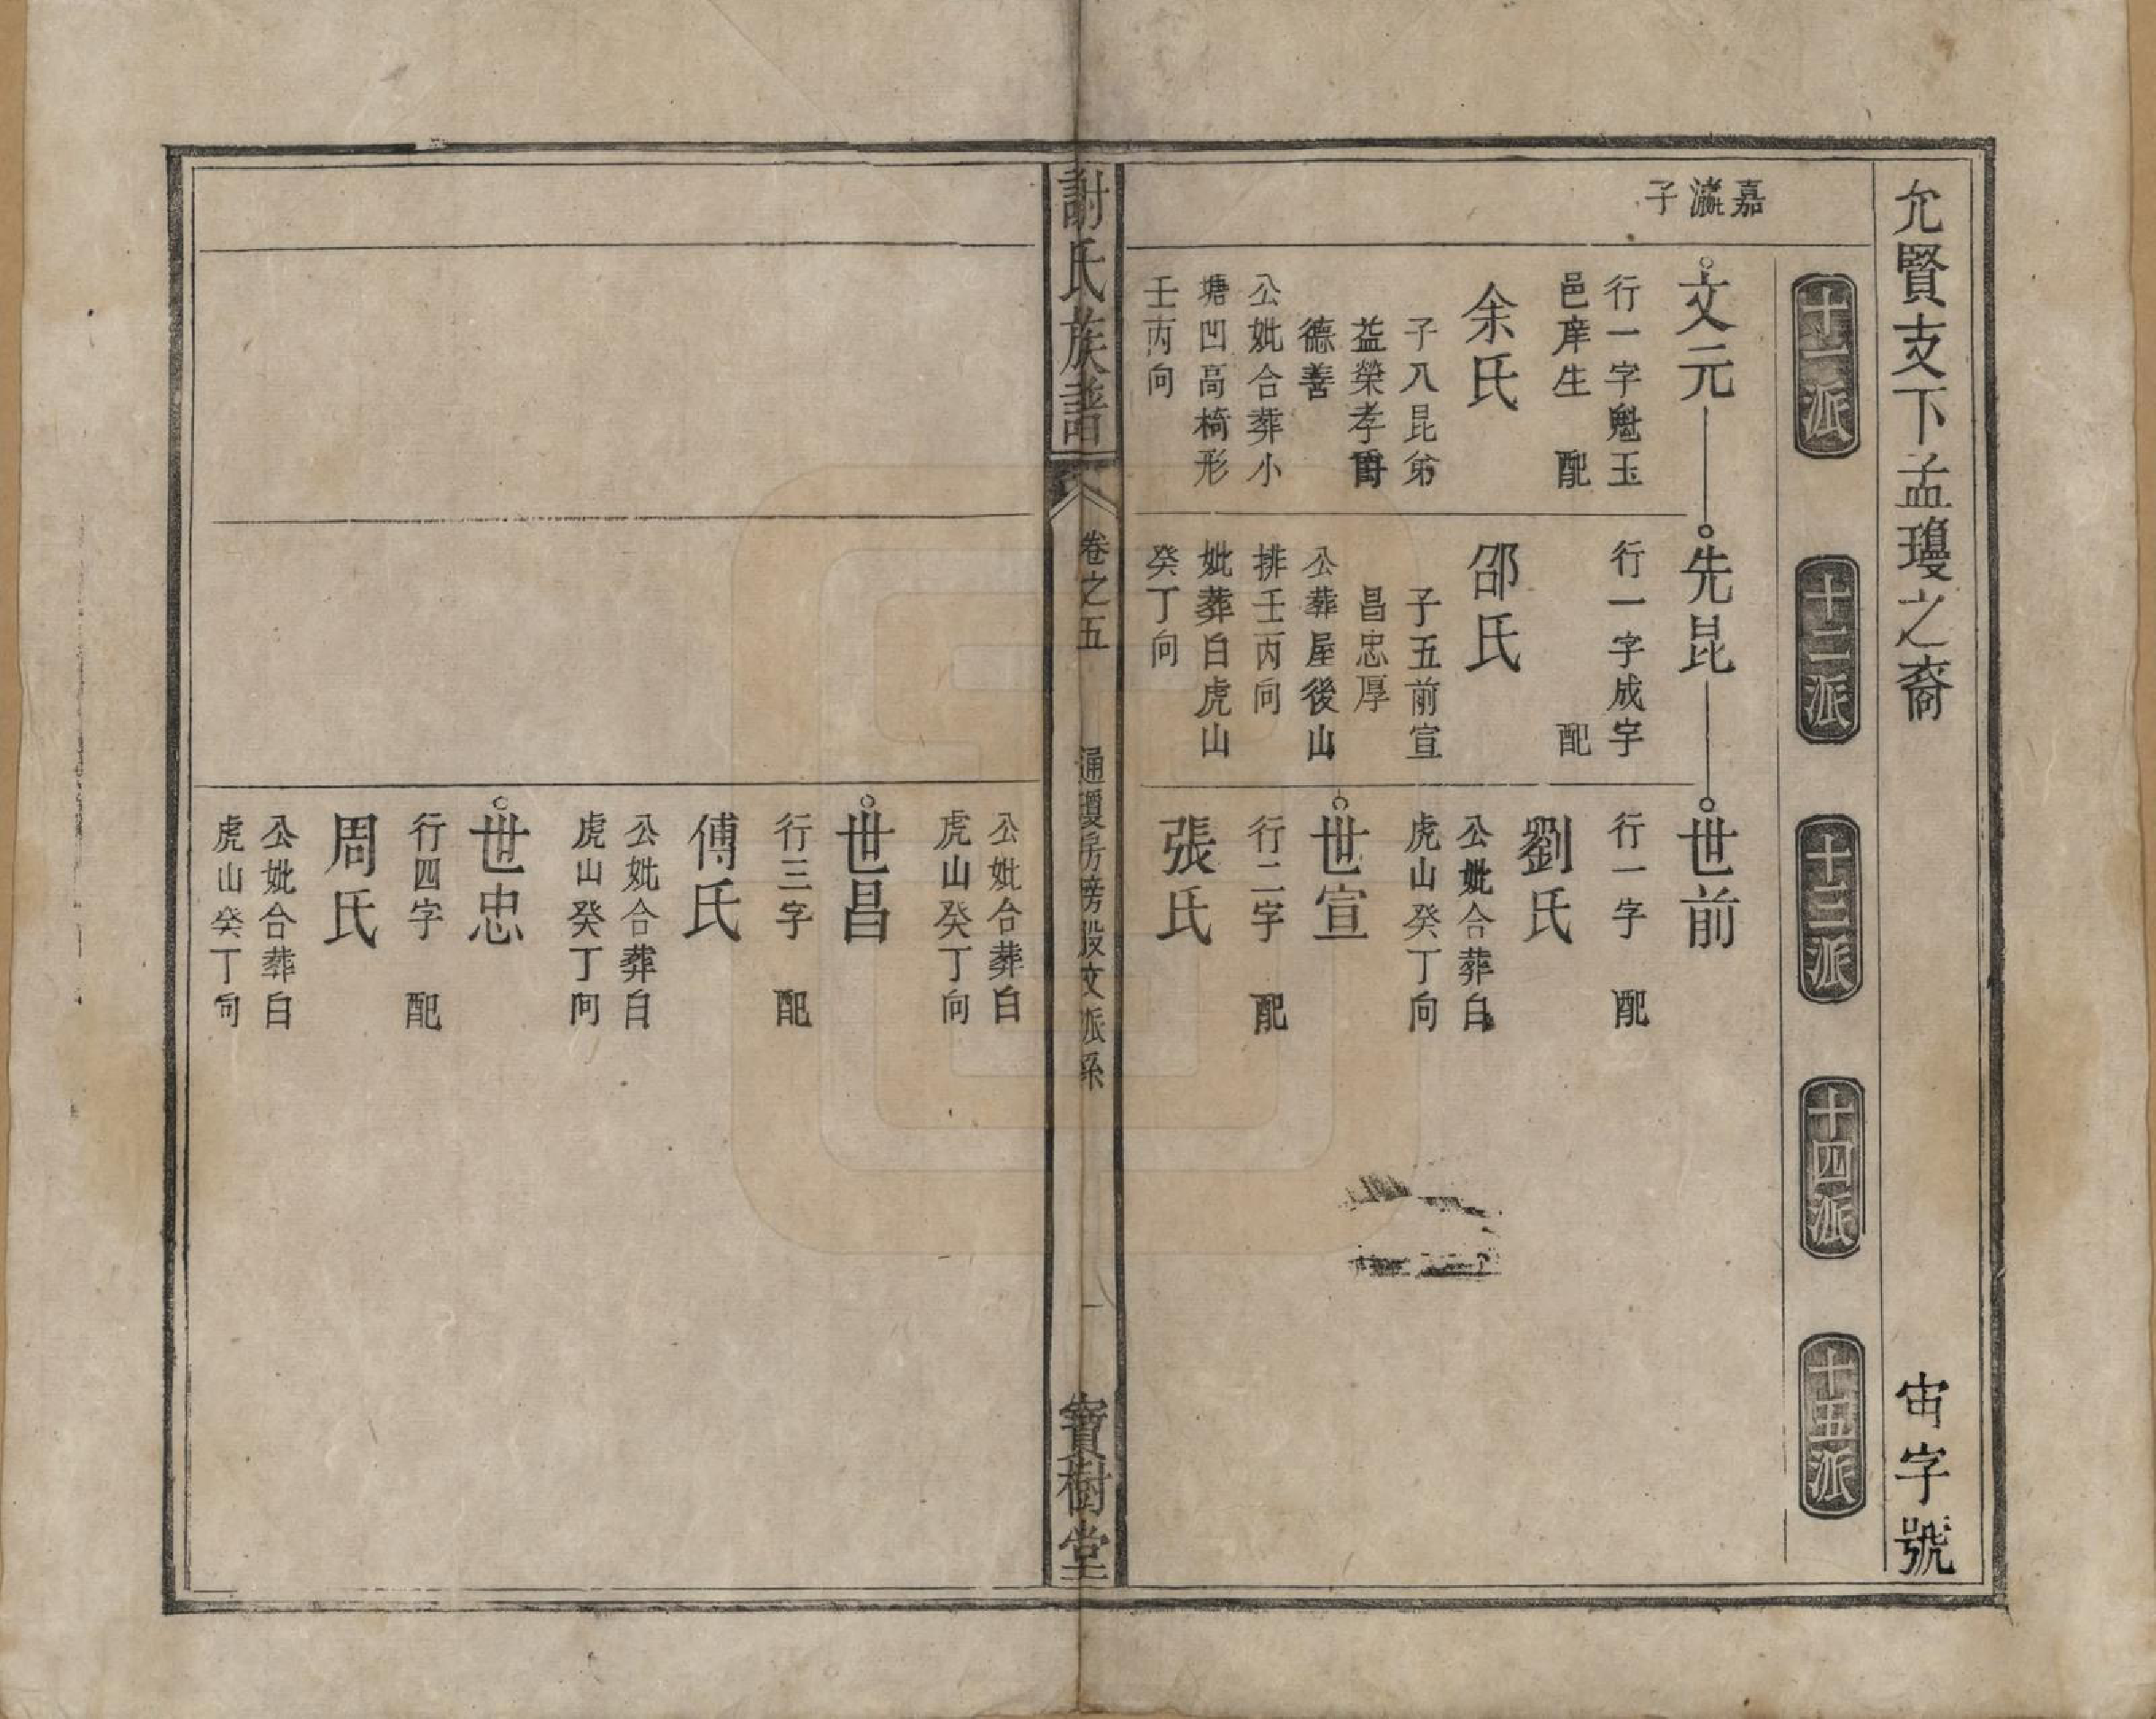 允賢支下孟瓊之裔
宙字號
十一派
十二派
十三派
十四派
十五派
嘉瀛子
文元
行一字魁玉
邑庠生 配
余氏
子八昆弟
益榮孝爵
德善
公妣合葬小
塘凹高椅形
壬丙向
先昆
行一字成宇
配
邵氏
子五前宣
昌忠厚
公葬屋後山
排壬丙向
妣葬白虎山
癸丁向
世前
行一字 配
劉氏
公妣合葬白
虎山癸丁向
世宣
行二字 配
張氏
謝氏族譜
卷之五
通瓊房滂股文派系
一
寶樹堂
公妣合葬白
虎山癸丁向
世昌
行三字 配
傅氏
公妣合葬白
虎山癸丁向
世忠
行四字 配
周氏
公妣合葬白
虎山癸丁向